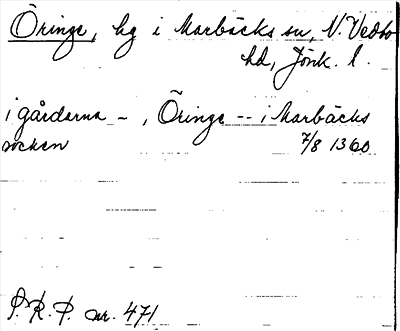 Öringe, hg i Marbäcks sn, N. Vedbo
hd, Jönk. l.
i gårderna – , Öringe -- i Marbäcks
socken 7/8 1360
P. R. P. nr. 471